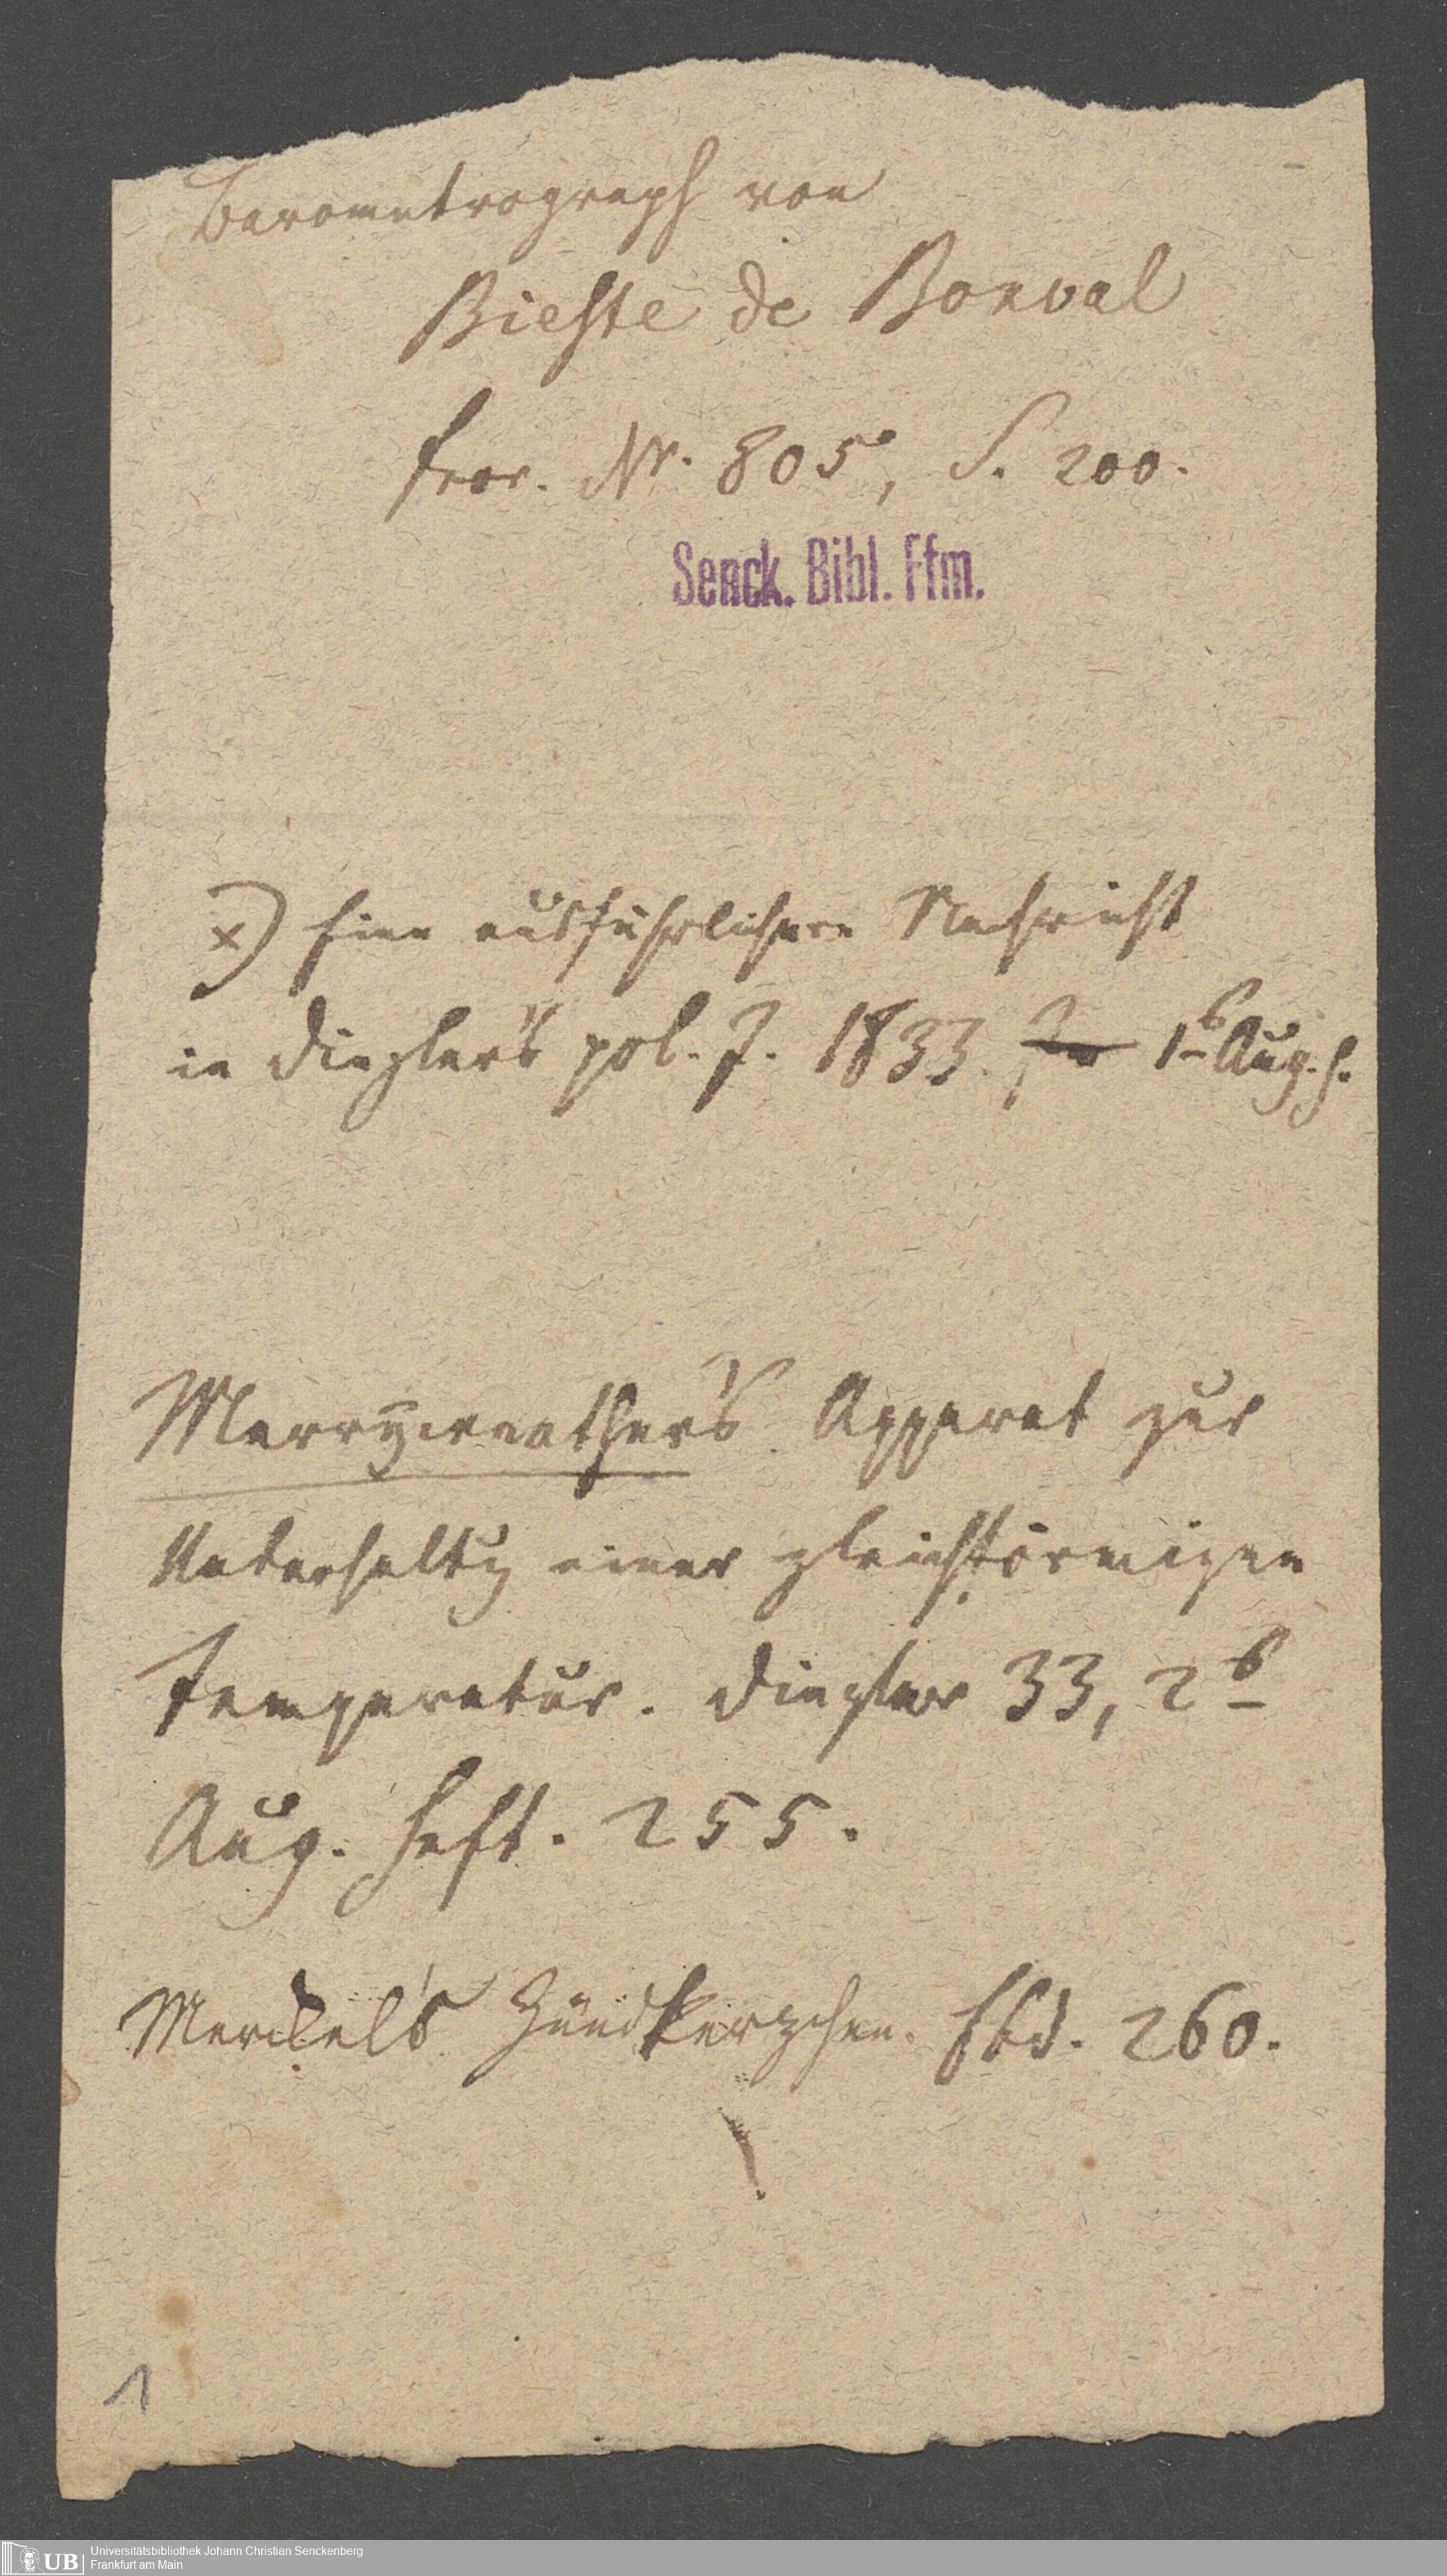 Barometrograph von
Bieste de Bonval
Fror. Nr. 805, S. 200.
Senck. Bibl. Ffm.
x) Eine ausführlichere Nachricht
in Dingler's pol. J. 1833. 1s Aug. H.
Merryweather's Apparat zur
Unterhaltg einer gleichförmigen
Temperatur. Dingler 33, 2s
Aug. Heft. 255.
Merckel's Zündkerzchen. Ebd. 260.
1
UB
Universitätsbibliothek Johann Christian Senckenberg
Frankfurt am Main